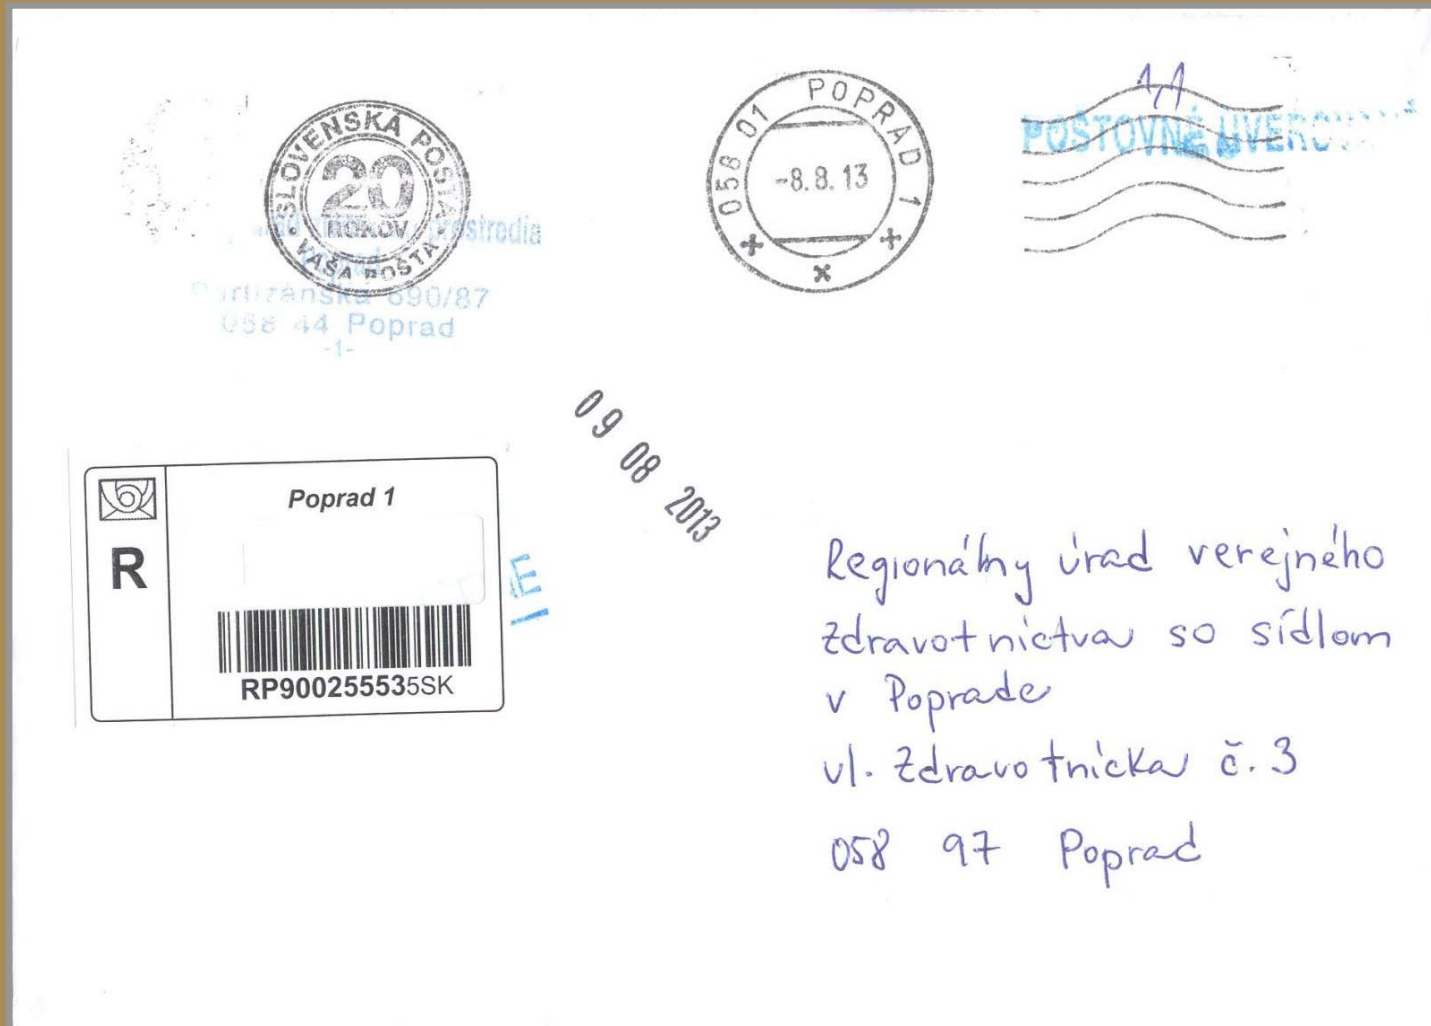 SLOVENSKÁ POŠTA
20
ROKOV
VAŠA POŠTA
prostredia
Partizánska 690/87
058 44 Poprad
-1-
058 01 POPRAD 1
-8.8.13
1,1
POŠTOVNÉ ÚVEROVANÉ
09 08 2013
Poprad 1
R
RP900255535SK
Regionálny úrad verejného
zdravotníctva so sídlom
v Poprade
ul. Zdravotnícka č. 3
058 97 Poprad